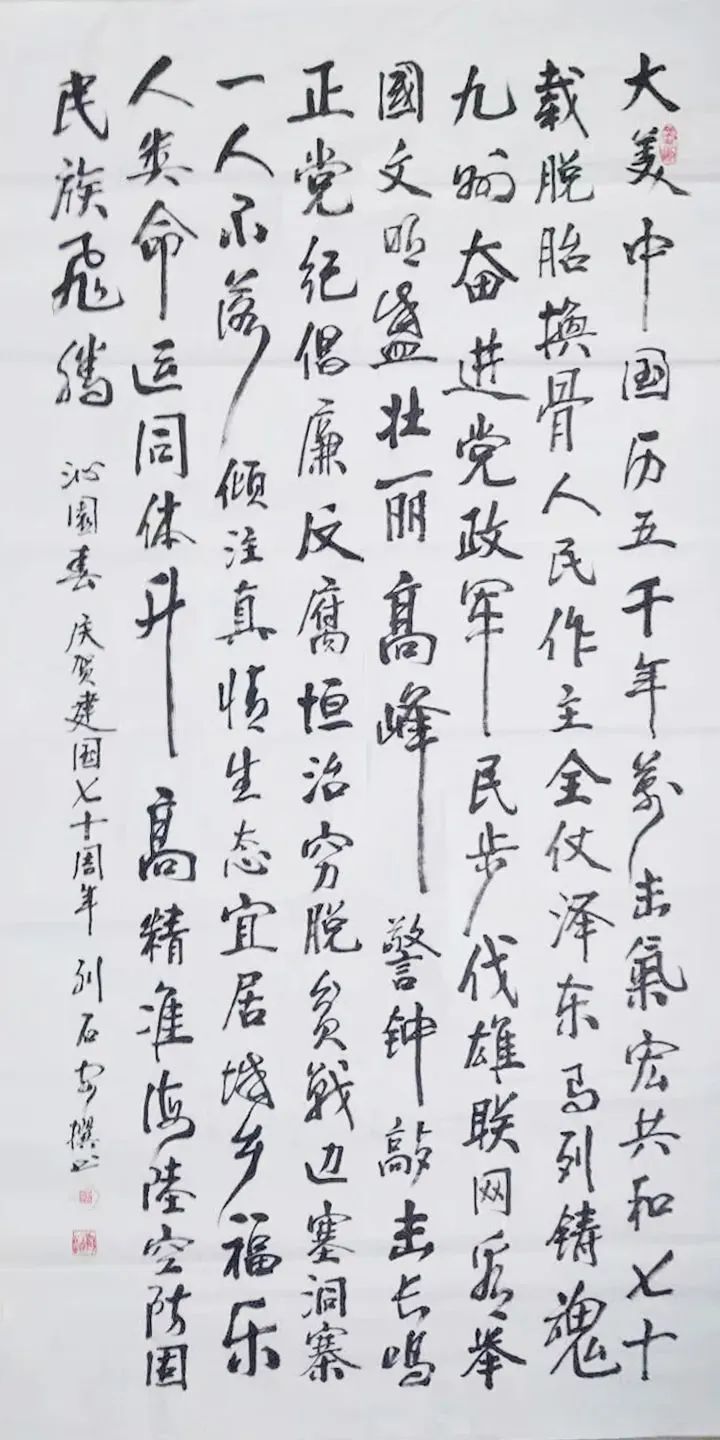 大美中国历五千年万古气宏共和七十
载脱胎换骨人民作主全仗泽东马列铸魂
九州奋进党政军民步伐雄联网看举
國文明盛壮丽高峰警钟敲击长鸣
正党纪倡廉反腐恒治穷脱贫战边塞洞寨
一人不落倾注真情生态宜居城乡福乐
人类命运同体升高精准海陸空防固
民族飞腾
沁園春庆贺建国七十周年 列石 撰书